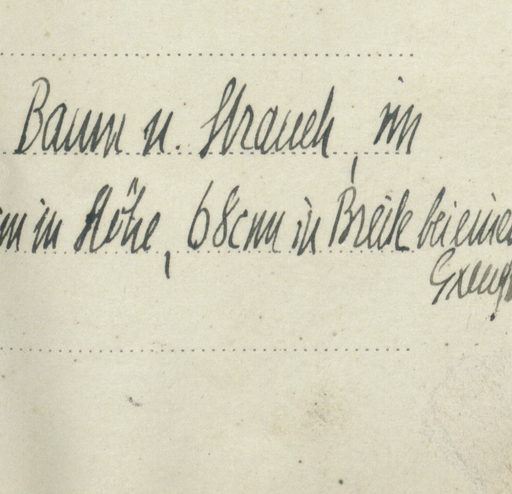 Baum u. Strauch, im
cm in Höhe, 68cm in Breite bei einer